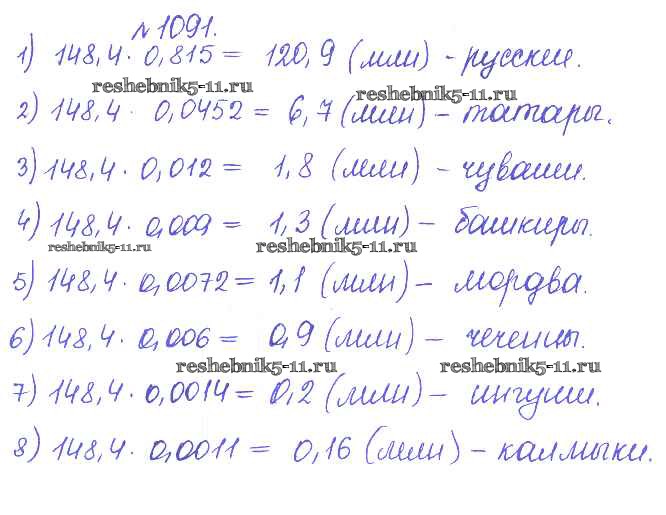 №1091.
1) 148,4 · 0,815 = 120,9 (млн) - русские.
reshebnik5-11.ru reshebnik5-11.ru
2) 148,4 · 0,0452 = 6,7 (млн) - татары.
3) 148,4 · 0,012 = 1,8 (млн) - чуваши.
4) 148,4 · 0,009 = 1,3 (млн) - башкиры.
reshebnik5-11.ru reshebnik5-11.ru
5) 148,4 · 0,0072 = 1,1 (млн) - мордва.
6) 148,4 · 0,006 = 0,9 (млн) - чеченцы.
reshebnik5-11.ru reshebnik5-11.ru
7) 148,4 · 0,0014 = 0,2 (млн) - ингуши.
8) 148,4 · 0,0011 = 0,16 (млн) - калмыки.